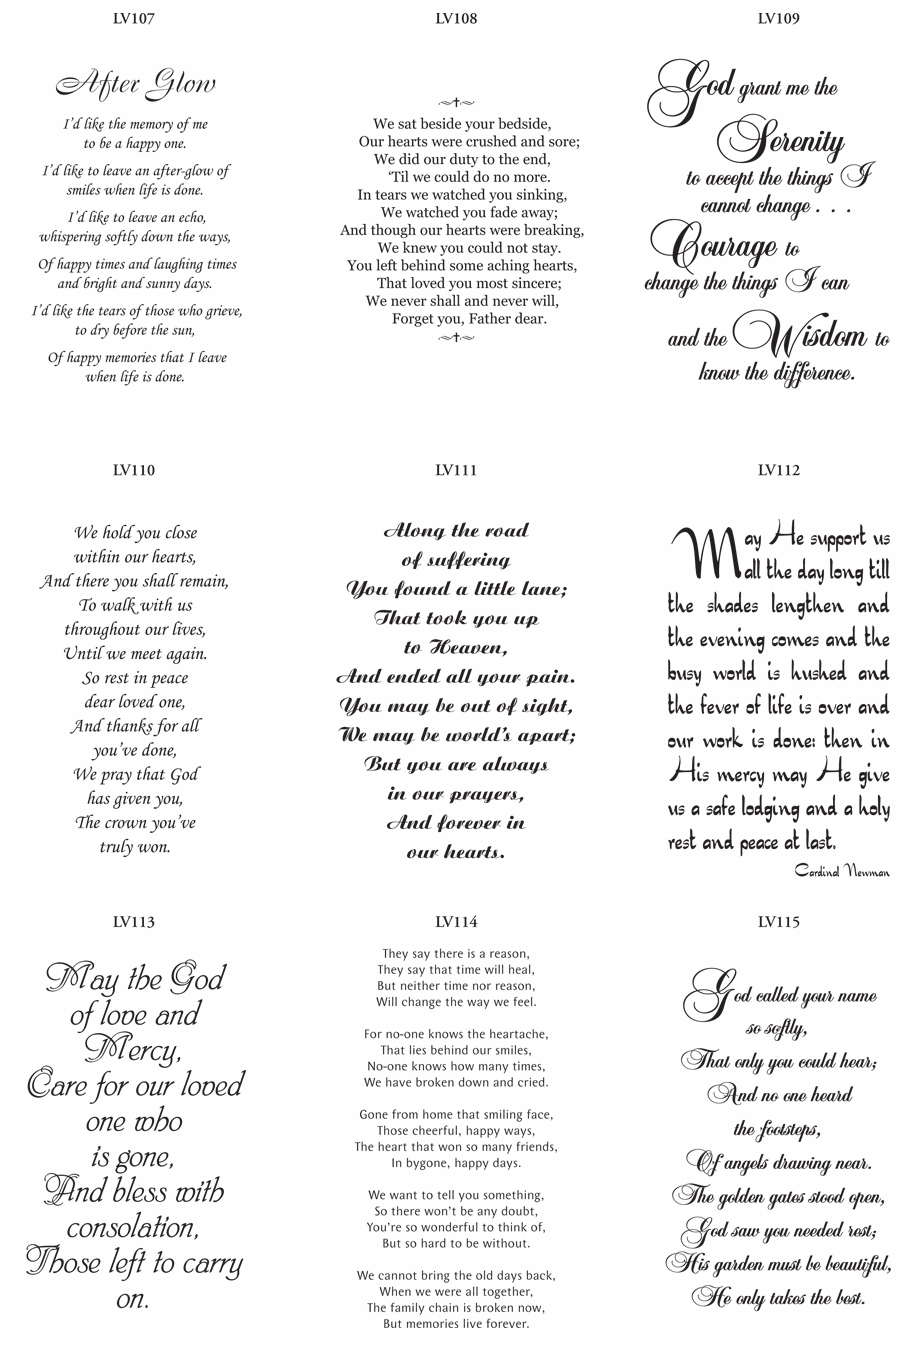 LV107
After Glow
I'd like the memory of me
to be a happy one.
I'd like to leave an after-glow of
smiles when life is done.
I'd like to leave an echo,
whispering softly down the ways,
Of happy times and laughing times
and bright and sunny days.
I'd like the tears of those who grieve,
to dry before the sun,
Of happy memories that I leave
when life is done.
LV108
We sat beside your bedside,
Our hearts were crushed and sore;
We did our duty to the end,
'Til we could do no more.
In tears we watched you sinking,
We watched you fade away;
And though our hearts were breaking,
We knew you could not stay.
You left behind some aching hearts,
That loved you most sincere;
We never shall and never will,
Forget you, Father dear.
LV109
God grant me the
Serenity
to accept the things I
cannot change . . .
Courage to
change the things I can
and the Wisdom to
know the difference.
LV110
We hold you close
within our hearts,
And there you shall remain,
To walk with us
throughout our lives,
Until we meet again.
So rest in peace
dear loved one,
And thanks for all
you've done,
We pray that God
has given you,
The crown you've
truly won.
LV111
Along the road
of suffering
You found a little lane;
That took you up
to Heaven,
And ended all your pain.
You may be out of sight,
We may be world's apart;
But you are always
in our prayers,
And forever in
our hearts.
LV112
May He support us
all the day long till
the shades lengthen and
the evening comes and the
busy world is hushed and
the fever of life is over and
our work is done: then in
His mercy may He give
us a safe lodging and a holy
rest and peace at last.
Cardinal Newman
LV113
May the God
of love and
Mercy,
Care for our loved
one who
is gone,
And bless with
consolation,
Those left to carry
on.
LV114
They say there is a reason,
They say that time will heal,
But neither time nor reason,
Will change the way we feel.
For no-one knows the heartache,
That lies behind our smiles,
No-one knows how many times,
We have broken down and cried.
Gone from home that smiling face,
Those cheerful, happy ways,
The heart that won so many friends,
In bygone, happy days.
We want to tell you something,
So there won't be any doubt,
You're so wonderful to think of,
But so hard to be without.
We cannot bring the old days back,
When we were all together,
The family chain is broken now,
But memories live forever.
LV115
God called your name
so softly,
That only you could hear;
And no one heard
the footsteps,
Of angels drawing near.
The golden gates stood open,
God saw you needed rest;
His garden must be beautiful,
He only takes the best.